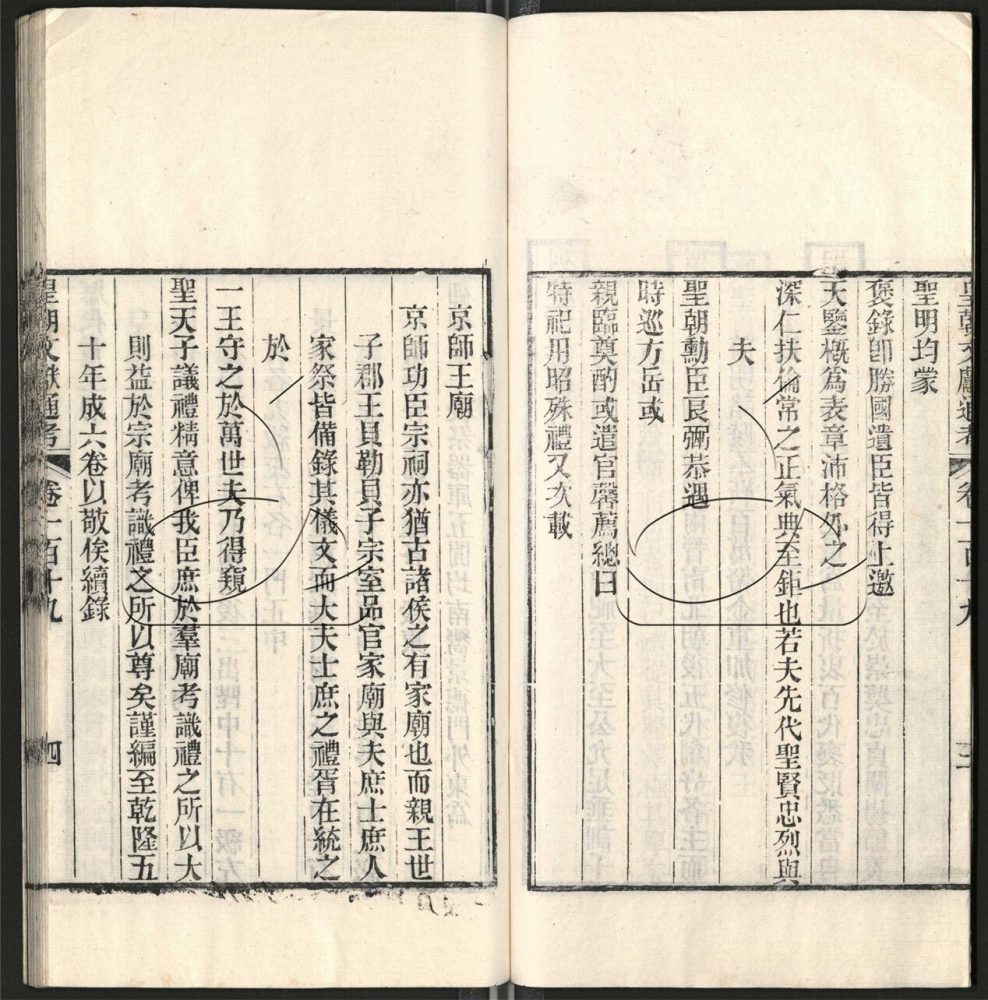 皇朝文獻通考 卷一百十九 三
聖明均蒙
褒錄卽勝國遺臣皆得上邀
天鑒概爲表章沛格外之
深仁扶倫常之正氣典至鉅也若夫先代聖賢忠烈與
夫
聖朝勳臣良弼恭遇
時巡方岳或
親臨奠酌或遣官馨薦總曰
特祀用昭殊禮又次載
京師王廟
京師功臣宗祠亦猶古諸侯之有家廟也而親王世
子郡王貝勒貝子宗室品官家廟與夫庶士庶人
家祭皆備錄其儀文而大夫士庶之禮胥在統之
於
一王守之於萬世夫乃得窺
聖天子議禮精意俾我臣庶於羣廟考識禮之所以大
則益於宗廟考識禮之所以尊矣謹編至乾隆五
十年成六卷以敬俟續錄
皇朝文獻通考 卷一百十九 四